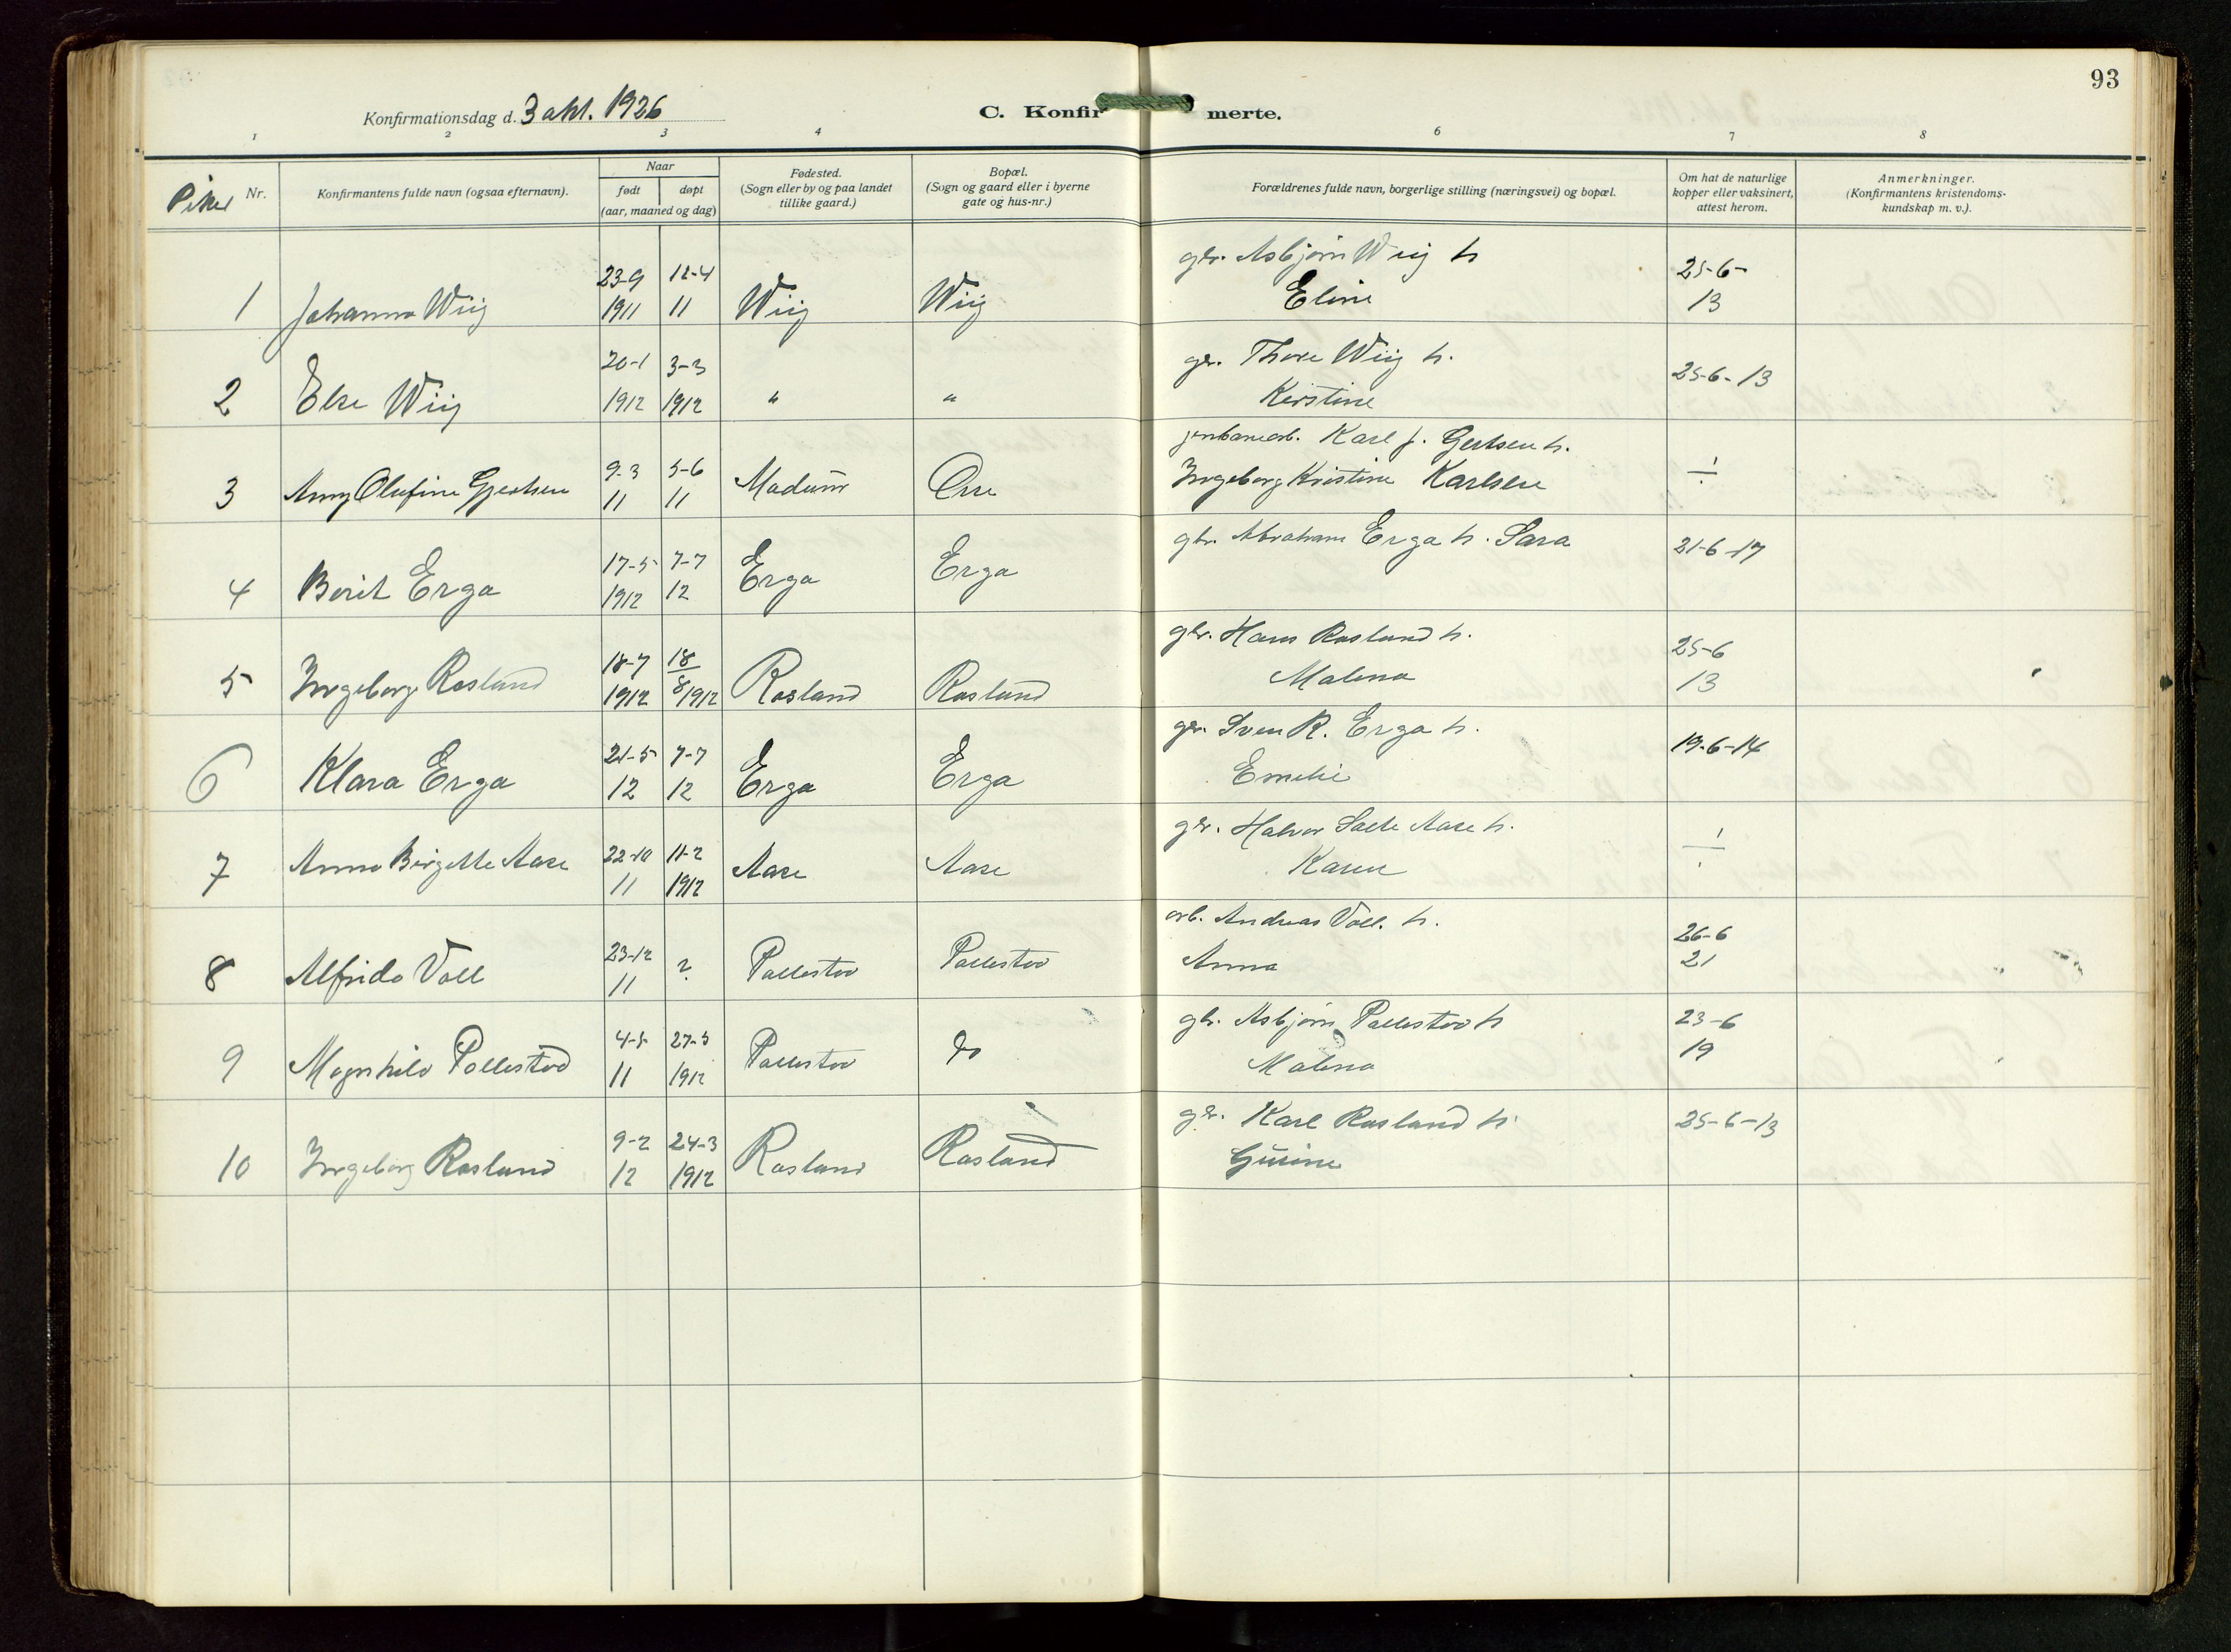 93
Konfirmationsdag d. 3 okt. 1926
C. Konfirmerte.
1 2 3 4 6 7 8
Piker Nr.
Konfirmantens fulde navn (ogsaa efternavn).
Naar
født døpt
(aar, maaned og dag)
Fødested.
(Sogn eller by og paa landet
tillike gaard.)
Bopæl.
(Sogn og gaard eller i byerne
gate og hus-nr.)
Forældrenes fulde navn, borgerlige stilling (næringsvei) og bopæl.
Om hat de naturlige
kopper eller vaksinert,
attest herom.
Anmerkninger.
(Konfirmantens kristendoms-
kundskap m. v.).
gbr. Asbjørn Wiig h
23-9 12-4 25-6-
1 Johanna Wiig 1911 11 Wiig Wiig Eline 13
20-1 3-3 gbr. Thore Wiig h. 25-6-13
2 Else Wiig 1912 1912 " " Kirstine
jernbanearb. Karl J. Gjertsen h.
9-3 5-6 Ingeborg Kristine Karlsen ÷
3 Anny Olufine Gjertsen 11 11 Madum Orre
gbr. Abraham Erga h. Sara 21-6-17
17-5 7-7
4 Berit Erga 1912 12 Erga Erga
gbr. Hans Rosland h.
18-7 18 25-6
5 Ingeborg Rosland 1912 8/1912 Rosland Rosland Malena 13
gbr. Sven R. Erga h.
21-5 7-7 19-6-14
6 Klara Erga 12 12 Erga Erga Emelie
gbr. Halvor Salte Aase h.
22-10 11-2 ÷
7 Anna Birgitte Aase 11 1912 Aase Aase Karen
arb. Andreas Voll. h.
23-12 26-6
8 Alfrida Voll 11 ? Pollestad Pollestad Anna 21
gbr. Asbjørn Pollestad h 23-6
4-5 27-5 19
9 Magnhild Pollestad 11 1912 Pollestad do Malena
gbr. Karl Rosland h. 25-6-13
9-2 24-3
10 Ingeborg Rosland 12 1912 Rosland Rosland Gurine